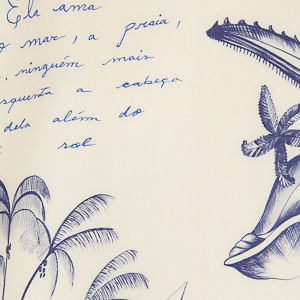 Ela ama
o mar, a praia,
, ninguém mais
esquenta a cabeça
dela além do
sol